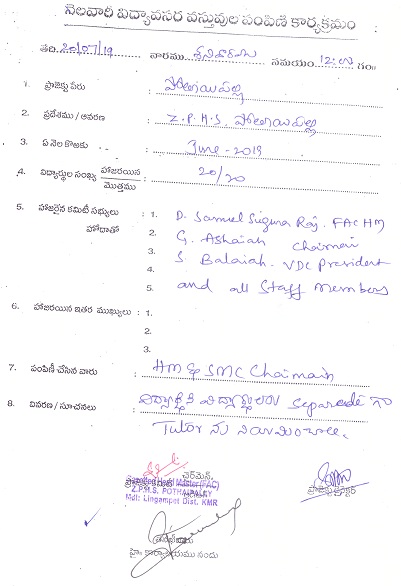 నెలవారీ విద్యావసర వస్తువుల పంపిణీ కార్యక్రమం
తేది 20/07/19 వారము శనివారము సమయం 12:00 గం
1. ప్రాజెక్టు పేరు పోతాయిపల్లి
2. ప్రదేశము / ఆవరణ Z.P.H.S. పోతాయిపల్లి
3. ఏ నెల కొఱకు June - 2019
4. విద్యార్థుల సంఖ్య హాజరయిన 20/20
మొత్తము
5. హాజరైన కమిటీ సభ్యులు : 1. D. Samuel Suguna Raj. FAC HM
హోదాతో 2. G. Ashaiah Chairman
3. S. Balaiah. VDC President
4. and all Staff members
5.
6. హాజరయిన ఇతర ముఖ్యులు : 1.
2.
3.
7. పంపిణీ చేసిన వారు : HM & SMC Chairman
8. వివరణ / సూచనలు : separate గా
Tutor ను నియమించాలి.
చైర్మెన్,
Master (FAC)
Z.P.H.S. POTHAIPALLY
Mdl: Lingampet Dist. KMR
హై కార్యాలయము నందు